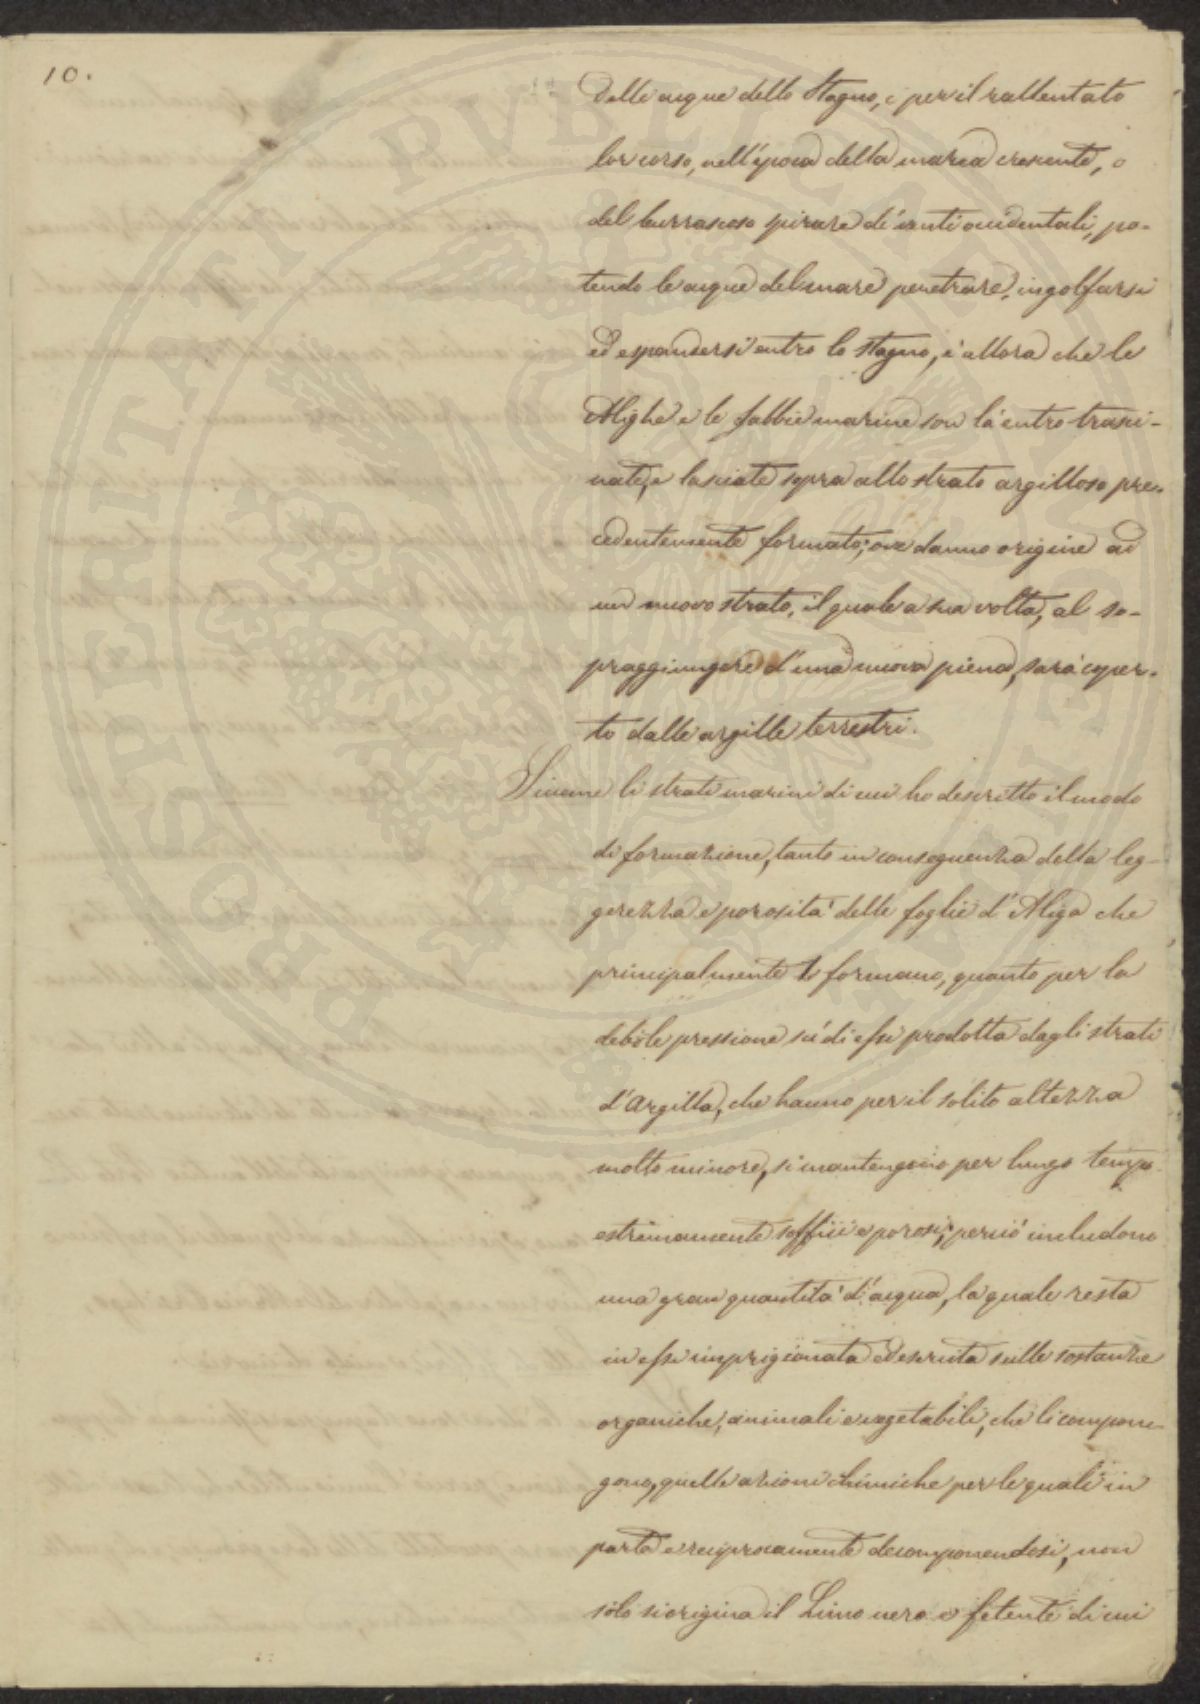 10.
delle acque dello Stagno, e per il rallentato
lor corso, nell'época della marea crescente, o
del burrascoso spirare di venti occidentali, po-
tendo le acque del mare penetrare, ingolfarsi
ed espandersi entro lo stagno, è allora che le
Alighe e le sabbie marine son là entro trasci-
nate, e lasciate sopra allo strato argilloso pre-
cedentemente formato; ove danno origine ad
un nuovo strato, il quale a sua volta, al so-
praggiungere d'una nuova piena, sarà coper-
to dalle argille terrestri.
Siccome li strati marini di cui ho descritto il modo
di formazione, tanto in conseguenza della leg-
gerezza e porosità delle foglie d'Aliga che
principalmente li formano, quanto per la
debole pressione su di essi prodotta dagli strati
d'Argilla, che hanno per il solito altezza
molto minore, si mantengono per lungo tempo
estremamente soffici e porosi; perciò includono
una gran quantità d'acqua, la quale resta
in essi imprigionata ed esercita sulle sostanze
organiche, animali e vegetabili, che li compon-
gono, quelle azioni chimiche per le quali in
parte e reciprocamente decomponendosi, non
solo si origina il Limo nero e fetente di cui
PROSPERITATI PVBLICAE